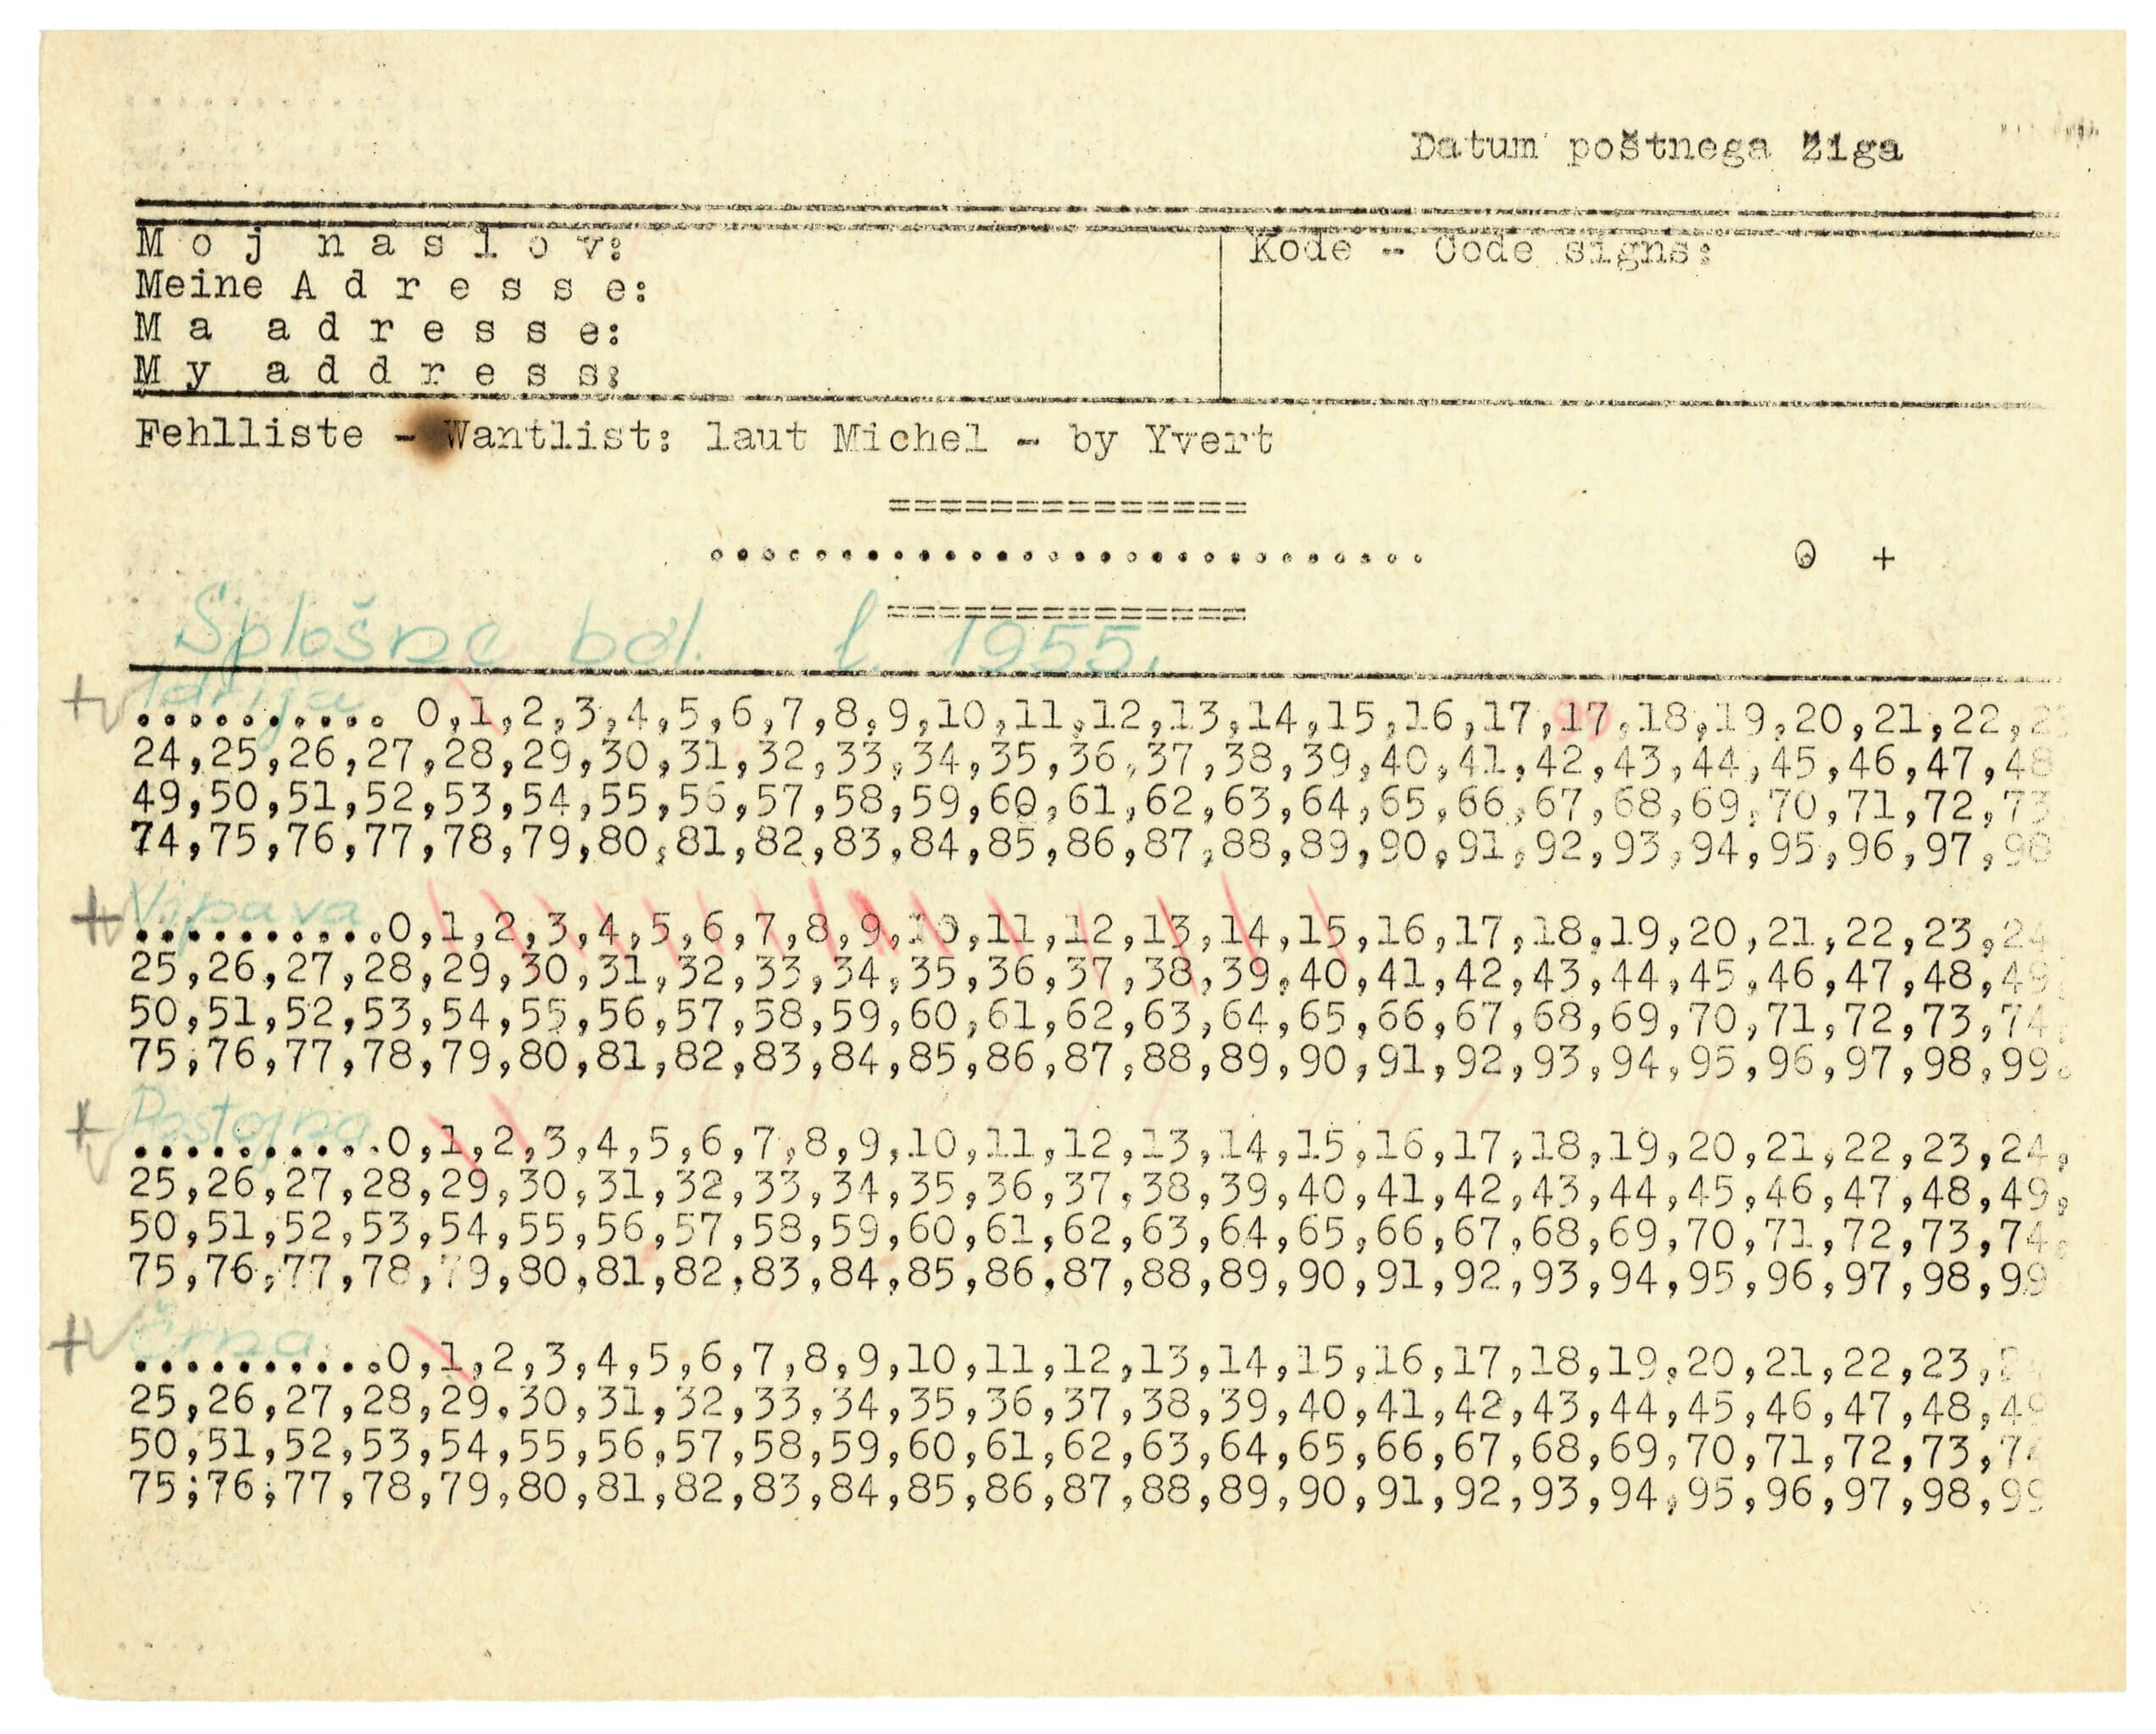 Datum poštnega žiga
Moj naslov:
Kode - Code signs:
Meine Adresse:
Ma adresse:
My address:
Fehlliste - Wantlist: laut Michel - by Yvert
==============
............................
O +
==============
Splošne bol. l. 1955.
+ Idrija
.......... 0,1,2,3,4,5,6,7,8,9,10,11,12,13,14,15,16,17,17,18,19,20,21,22,23
24,25,26,27,28,29,30,31,32,33,34,35,36,37,38,39,40,41,42,43,44,45,46,47,48
49,50,51,52,53,54,55,56,57,58,59,60,61,62,63,64,65,66,67,68,69,70,71,72,73
74,75,76,77,78,79,80,81,82,83,84,85,86,87,88,89,90,91,92,93,94,95,96,97,98
+ Vipava
..........0,1,2,3,4,5,6,7,8,9,10,11,12,13,14,15,16,17,18,19,20,21,22,23,24
25,26,27,28,29,30,31,32,33,34,35,36,37,38,39,40,41,42,43,44,45,46,47,48,49,
50,51,52,53,54,55,56,57,58,59,60,61,62,63,64,65,66,67,68,69,70,71,72,73,74,
75,76,77,78,79,80,81,82,83,84,85,86,87,88,89,90,91,92,93,94,95,96,97,98,99.
+ Postojna
..........0,1,2,3,4,5,6,7,8,9,10,11,12,13,14,15,16,17,18,19,20,21,22,23,24,
25,26,27,28,29,30,31,32,33,34,35,36,37,38,39,40,41,42,43,44,45,46,47,48,49,
50,51,52,53,54,55,56,57,58,59,60,61,62,63,64,65,66,67,68,69,70,71,72,73,74,
75,76,77,78,79,80,81,82,83,84,85,86,87,88,89,90,91,92,93,94,95,96,97,98,99
+ Črna
..........0,1,2,3,4,5,6,7,8,9,10,11,12,13,14,15,16,17,18,19,20,21,22,23,2
25,26,27,28,29,30,31,32,33,34,35,36,37,38,39,40,41,42,43,44,45,46,47,48,49
50,51,52,53,54,55,56,57,58,59,60,61,62,63,64,65,66,67,68,69,70,71,72,73,74
75;76;77,78,79,80,81,82,83,84,85,86,87,88,89,90,91,92,93,94,95,96,97,98,99